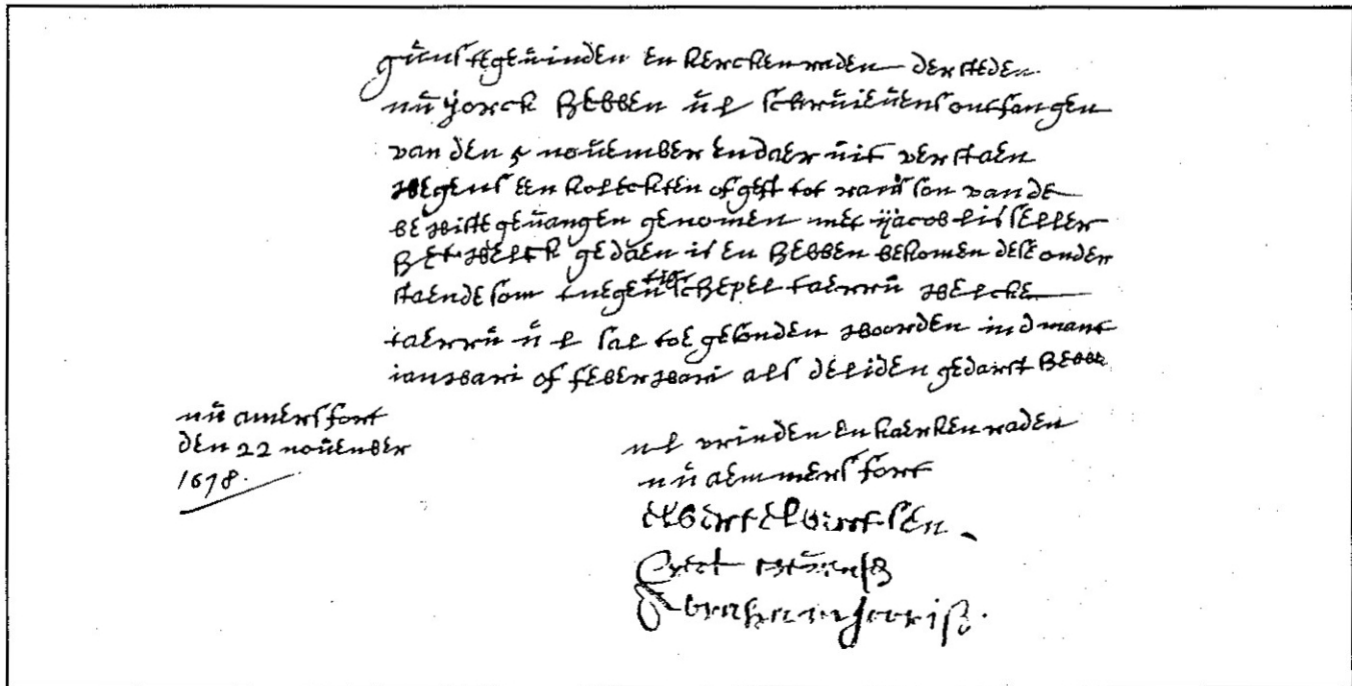 gūnstege vrinden en kerckenraden der steden
nū ÿorck hebben ū l schrūievens ontfangen
van den 5 november en daer ūit verstaen
wegens een kolleckten of gift tot van de
gevangen genomen met ÿacob leisseller
het welck gedaen is en hebben bekomen dese onder
staende som schepel taerrū welcke
taerrū ū l sal toe gesonden woorden in d mant
ianwari of feberwari als de liden gedorst hebbe
nū amersfort
den 22 november
1678.
ūl vrinden en kaerken raden
nū aemmersfort
elbert elbertsen
roelof
Abraham Joeriss.